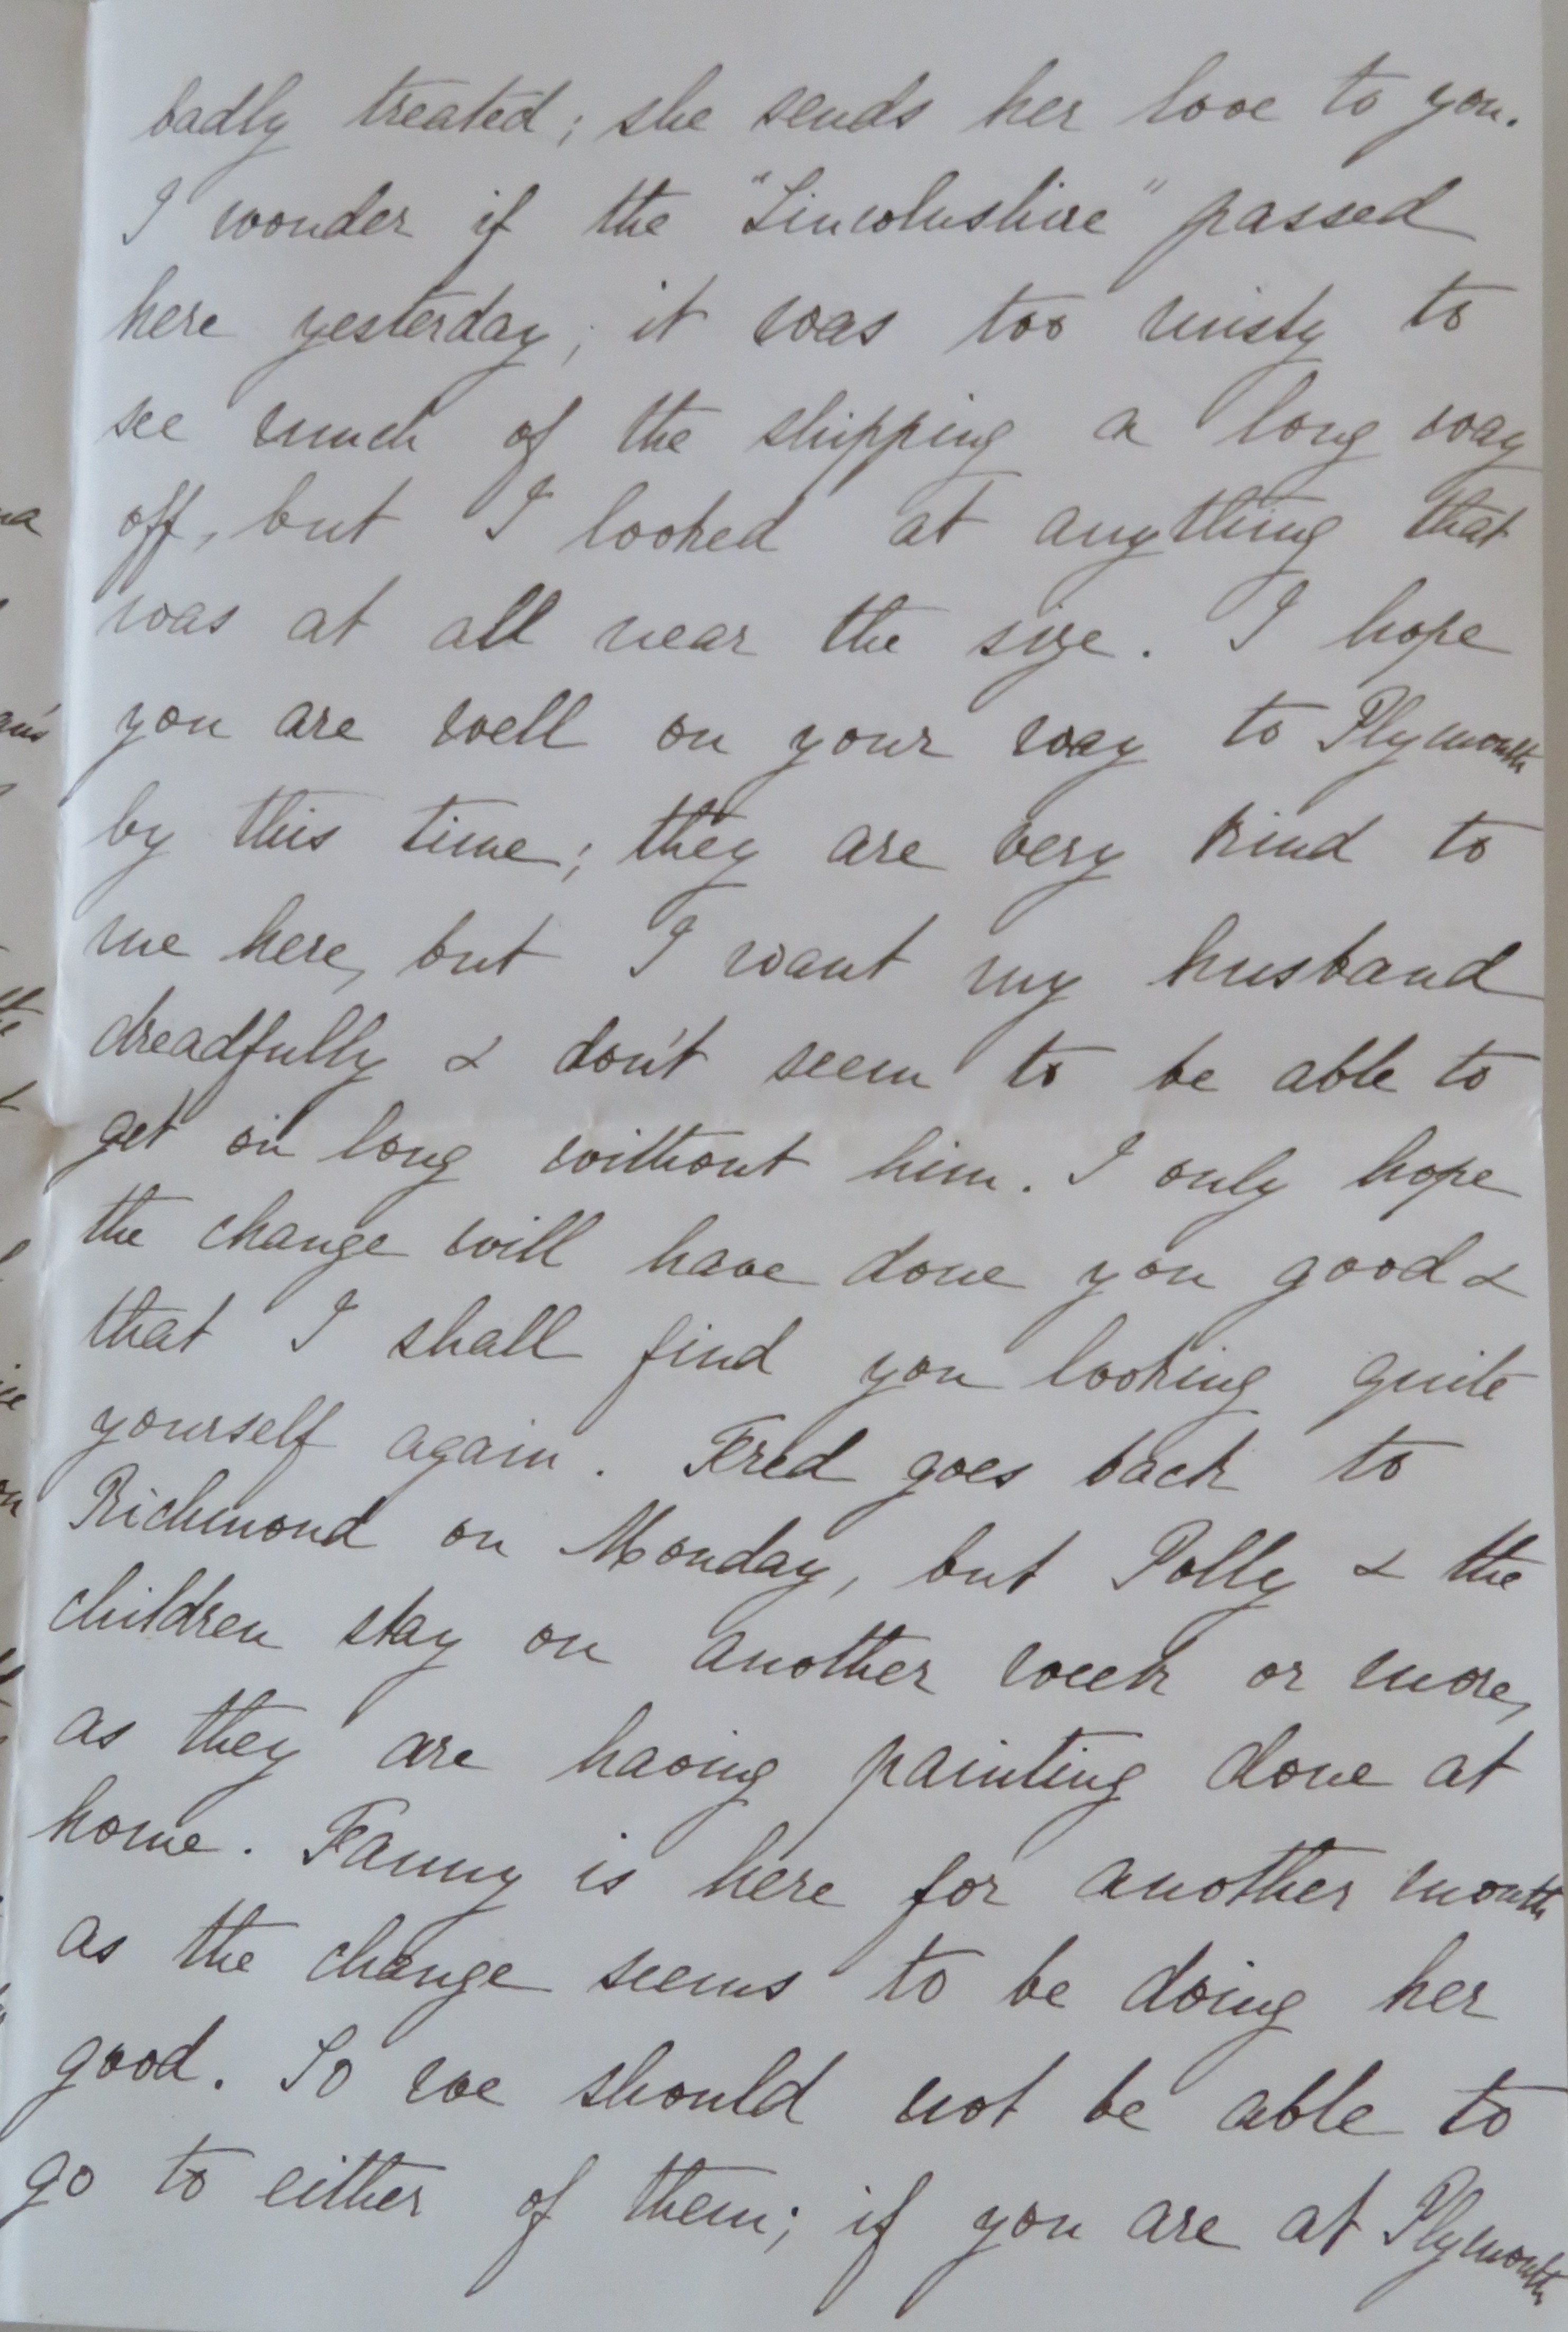 badly treated; she sends her love to you.
I wonder if the "Lincolnshire" passed
here yesterday; it was too misty to
see much of the shipping a long way
off, but I looked at anything that
was at all near the size. I hope
you are well on your way to Plymouth
by this time; they are very kind to
me here, but I want my husband
dreadfully & don't seem to be able to
get on long without him. I only hope
the change will have done you good &
that I shall find you looking quite
yourself again. Fred goes back to
Richmond on Monday, but Polly & the
children stay on another week or more,
as they are having painting done at
home. Fanny is here for another month
as the change seems to be doing her
good. So we should not be able to
go to either of them; if you are at Plymouth